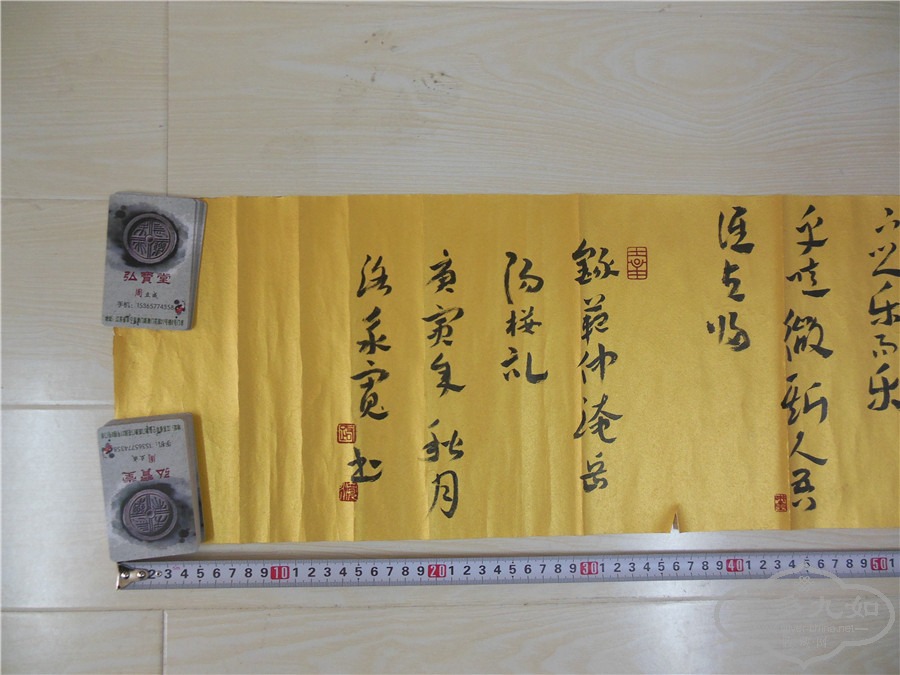 六必乐而乐
乎噫微斯人吾
谁与归
录范仲淹岳
阳楼记
庚寅年秋月
洛永宽书
弘寶堂
周立成
手机：15365774358
弘寶堂
周立成
手机：15365774358
2 3 4 5 6 7 8 9 10 1 2 3 4 5 6 7 8 9 20 1 2 3 4 5 6 7 8 9 30 1 2 3 4 5 6 7 8 9 40 1 2 3 4 5 6 7 8 9 50 1
九如